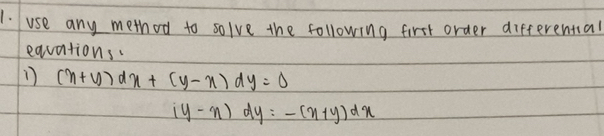 1. use any method to solve the following first order differential
equations.
i) (x+y)dx + (y-x)dy = 0
(y-x) dy = -(x+y)dx